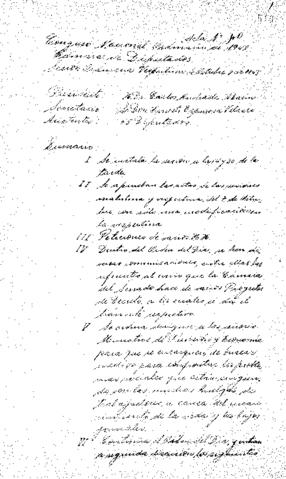 Acta Nº 70
Congreso Nacional Ordinario de 1948
Cámara de Diputados
Sesión Vespertina, Octubre de 1948
Presidente: H. Dr. Carlos Andrade Marín
Secretario: Sr. Don Espinosa
Asistentes: 65 Diputados.
Sumario:
I Se instala la sesión, a las de la
tarde
II Se aprueban las actas de las sesiones
matutina y vespertina del 7 de
con sólo una modificación en
la vespertina
III Peticiones de varios H.H.
IV Dentro del Orden del Día, se
comunicaciones, entre ellas las
al envío que la Cámara
del Senado hace de varios Proyectos
de Decreto, a los cuales se dá el
trámite respectivo
V Se ordena a los señores
Ministros de Previsión y Economía
para que se encarguen de buscar
medios para confrontar los
sociales que están
de con las muchas huelgas de
trabajadores, a causa del
de la vida y los bajos
jornales.
VI Continúa el Orden del Día, y entran
a segunda discusión los siguientes